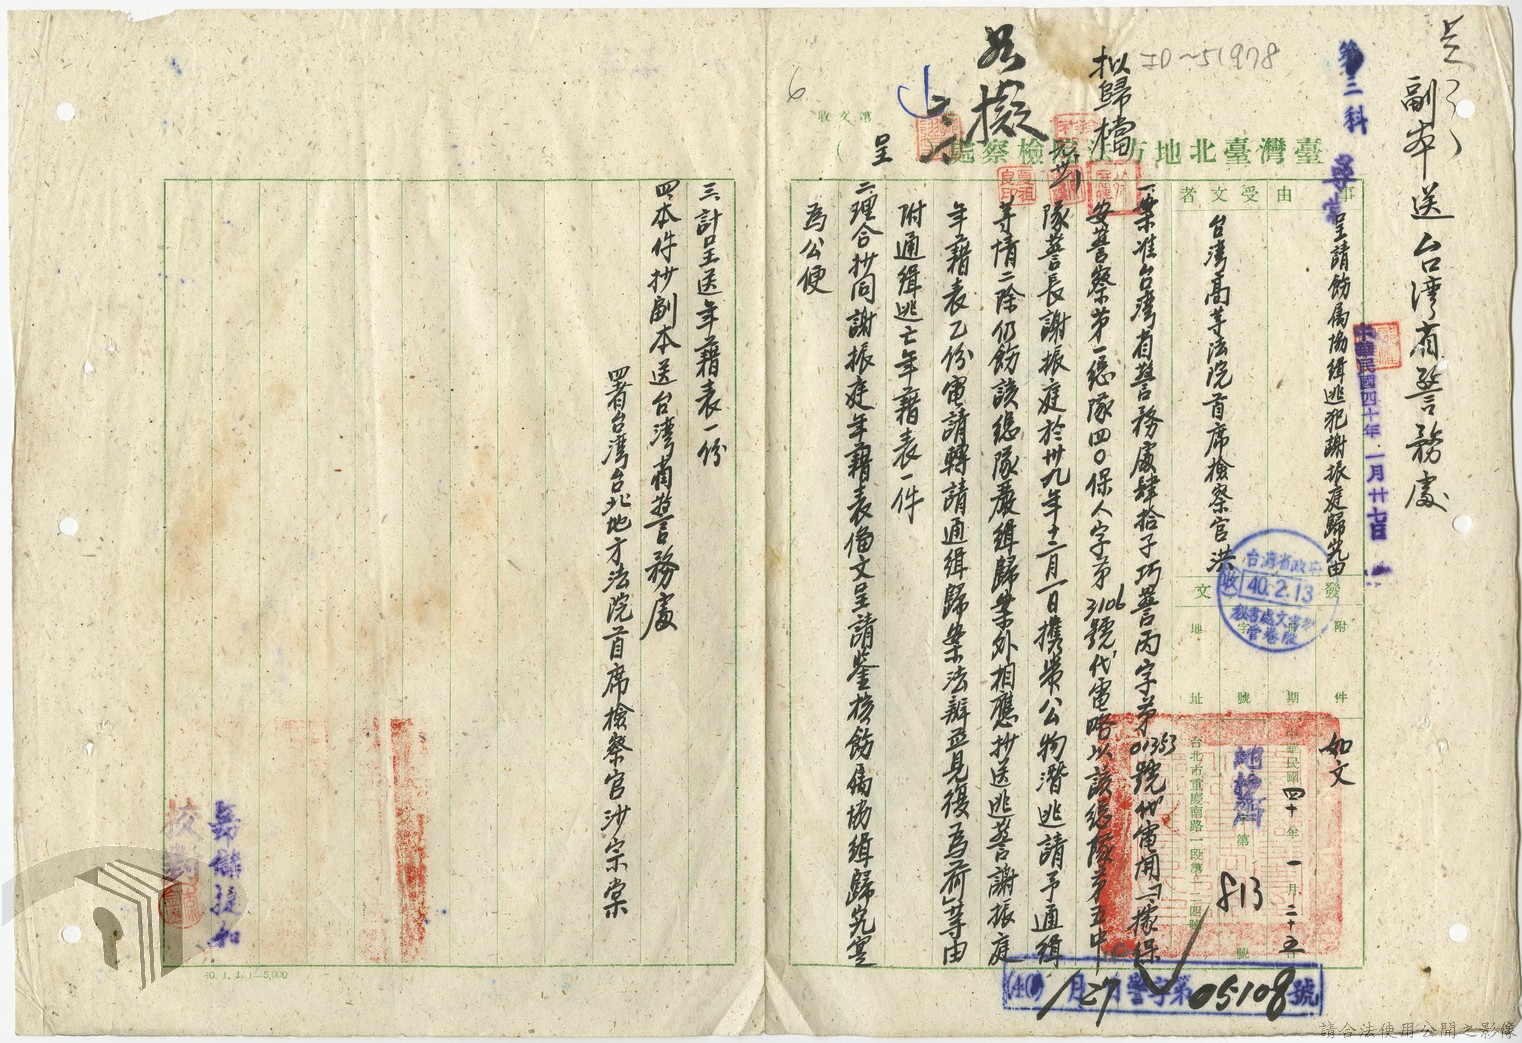 副本送台灣省警務處
第三科
ID~51978
拟歸檔
如擬
6
收文第
臺灣臺北地方法院檢察處
呈
事由
呈請飭属協緝逃犯謝振庭歸究由
中華民國四十年一月廿七日
受文者
台灣高等法院首席檢察官洪
附件
如文
發文
日期
中華民國四十年一月二十五日
字號
第813號
地址
台北市重慶南路一段第一二四號
台灣省政府
收 40.2.13
秘書處文書科
管卷股
一案准台灣省警務處肆拾子巧警丙字第01353號代電開「一據保
安警察第一總隊四〇保人字第3106號代電略以該總隊第五中
隊警長謝振庭於卅九年十二月一日携帶公物潛逃請予通緝
等情二除仍飭該總隊嚴緝歸案外相應抄送逃警謝振庭
年籍表乙份電請轉請通緝歸案法辦並見復為荷」等由
附通緝逃亡年籍表一件
二理合抄同謝振庭年籍表備文呈請鉴核飭属協緝歸究寔
為公便
三、計呈送年籍表一份
四、本件抄副本送台灣省警務處
四署台灣台北地方法院首席檢察官沙宗棠
校對
(40) 1月27日警字第05108號
40. 1. J. 1—5,000
請合法使用公開之影像